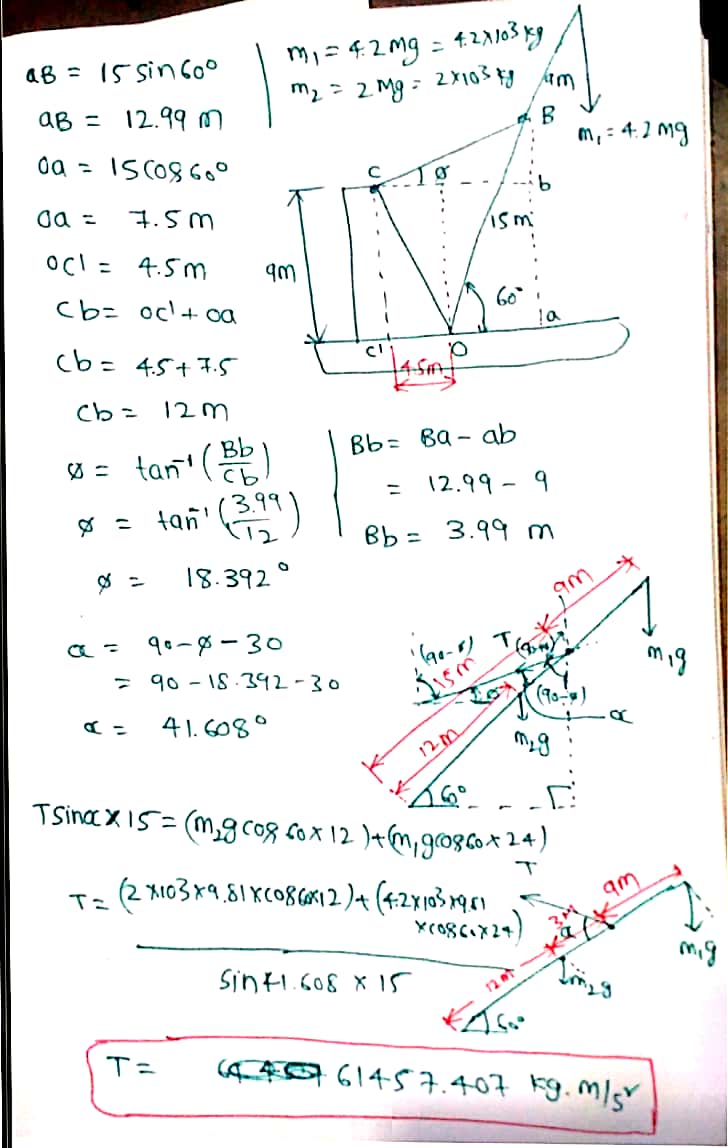 aB = 15 sin60°
aB = 12.99 m
oa = 15cos60°
oa = 7.5m
oc1 = 4.5m
Cb= oc'+oa
Cb= 4.5+7.5
Cb= 12m
ø = tan⁻¹(Bb/Cb)
ø = tan⁻¹(3.99/12)
ø = 18.392°
m₁ = 4.2Mg = 4.2x10³kg
m₂ = 2Mg = 2x10³kg
9m
B
m₁ = 4.2mg
C
ø
b
15m
9m
60°
a
c1
O
4.5m
Bb= Ba-ab
= 12.99-9
Bb= 3.99 m
α = 90-ø-30
= 90-18.392-30
α = 41.608°
9m
T
15m
m₁g
(90-ø)
α
12m
m₂g
60°
Tsinα x 15 = (m₂gcos60x12)+(m₁gcos60x24)
T= (2x103x9.81xcos60x12)+(4.2x103x9.81
xcos60x24)
sin41.608 x 15
T
9m
3m
α
m₁g
12m
m₂g
60°
T= 61457.407 kg.m/s²